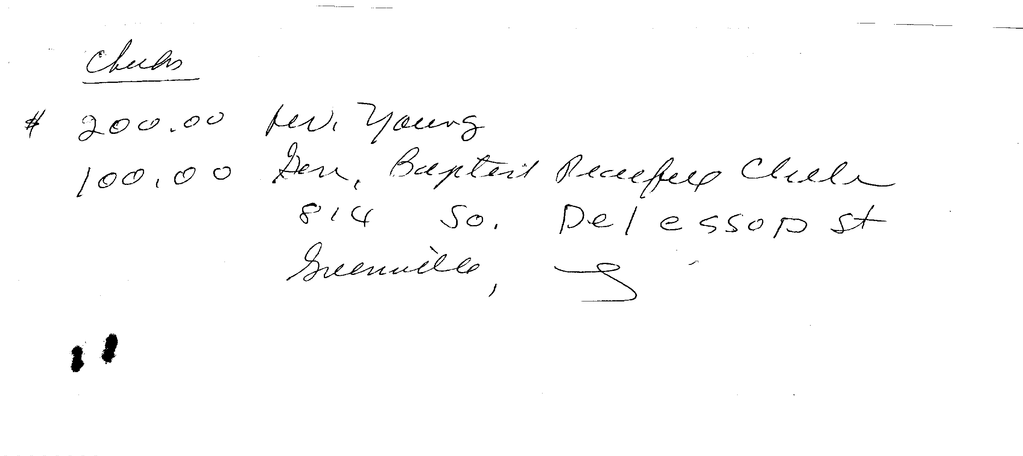 Checks
$ 200.00 Rev. Young
100.00 Gen. Baptist Peaceful
814 So. Delessop St
Greenville,